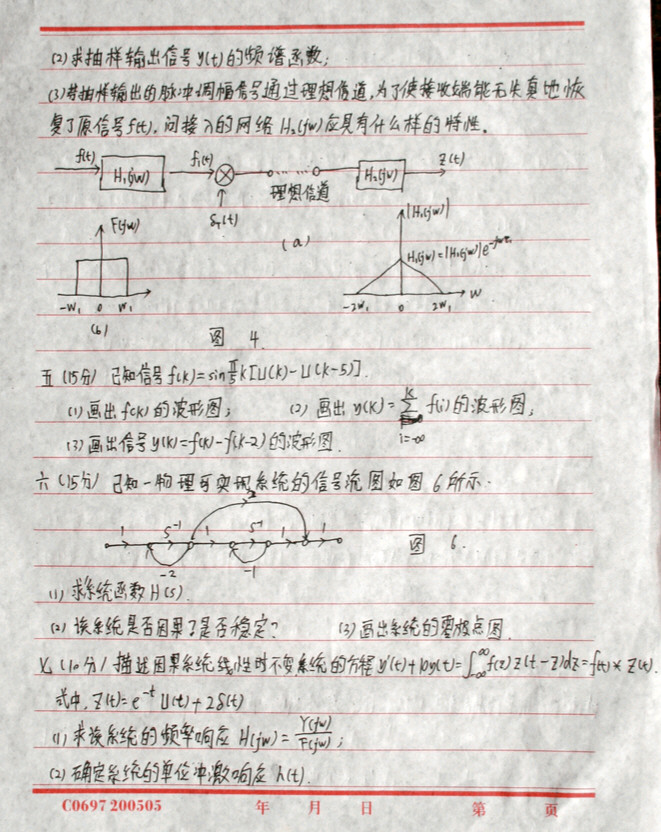 (2) 求抽样输出信号y(t)的频谱函数;
(3)若抽样输出的脉冲调幅信号通过理想信道,为了使接收端能无失真地恢
复了原信号f(t),问接入的网络H₂(jw)应具有什么样的特性。
f(t) H₁(jw) f₁(t) 理想信道 H₂(jw) Z(t)
δT(t)
(a)
F(jw)
-W₁ 0 W₁
(b)
|H₁(jw)|
H₁(jw)=|H₁(jw)|e
-2W₁ 0 2W₁ w
图 4
五 (15分) 已知信号 f(k)=sin π/5 k[U(k)-U(k-5)].
(1) 画出f(k)的波形图; (2) 画出 y(k)=∑ f(i)的波形图;
K
i=-∞
(3)画出信号y(k)=f(k)-f(k-2)的波形图.
六 (15分) 已知一物理可实现系统的信号流图如图6所示.
1 S⁻¹ 1 S⁻¹ 1 1
-2 -1
图 6.
(1) 求系统函数H(s).
(2) 该系统是否因果?是否稳定? (3)画出系统的零极点图.
七 (10分) 描述因果系统线性时不变系统的方程 y'(t)+10y(t)=∫-∞^∞ f(z) z(t-z)dz=f(t)*Z(t).
式中, Z(t)=e^-t U(t)+2δ(t)
(1) 求该系统的频率响应 H(jw)=Y(jw)/F(jw);
(2) 确定系统的单位冲激响应 h(t).
C0697 200505 年 月 日 第 页